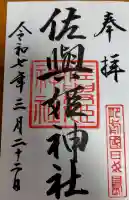 奉拝
佐與姫神社
令和七年三月二十二日